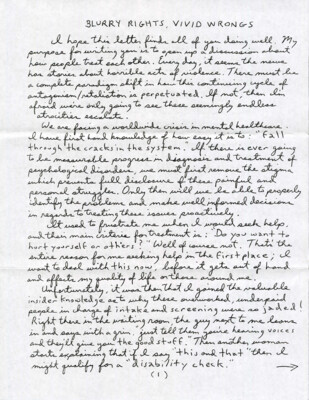 BLURRY RIGHTS, VIVID WRONGS
I hope this letter finds all of you doing well. My
purpose for writing you is to open up a discussion about
how people treat each other. Every day, it seems the news
has stories about horrible acts of violence. There must be
a complete paradigm shift in how this continuing cycle of
antagonism/retaliation is perpetuated. If not, then I'm
afraid we're only going to see these seemingly endless
atrocities escalate.
We are facing a worldwide crisis in mental healthcare.
I have first hand knowledge of how easy it is to: "Fall
through the cracks in the system". If there is ever going
to be measurable progress in diagnosis and treatment of
psychological disorders, we must first remove the stigma
which prevents full disclosure of these painful and
personal struggles. Only then will we be able to properly
identify the problems and make well informed decisions
in regards to treating these issues proactively.
It used to frustrate me when I would seek help,
and their main criteria for treatment is: "Do you want to
hurt yourself or others?" Well of course not. That's the
entire reason for me seeking help in the first place; I
want to deal with this now, before it gets out of hand
and affects my quality of life or those around me.
Unfortunately, it was then that I gained the valuable
insider knowledge as to why these overworked, underpaid
people in charge of intake and screening were so jaded!
Right there in the waiting room, the guy next to me leans
in and says with a grin, "just tell them you're hearing voices
and they'll give you the good stuff." Then another woman
starts explaining that if I say "this and that" then I
might qualify for a "disability check." →
(1)